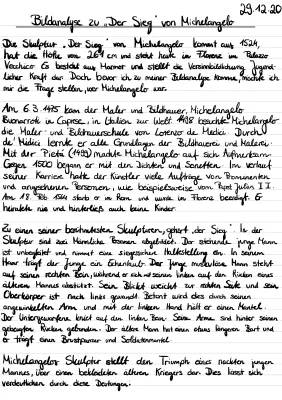 29.12.20
Bildanalyse zu „Der Sieg" von Michelangelo
Die Skulptur „Der Sieg" von Michelangelo kommt aus 1524,
hat die Höhe von 2,61 cm und steht heute in Florenz im Palazzo
Vecchio. Es besteht aus Marmor und stellt die Versinnbildlichung Jugend-
licher Kraft dar. Doch bevor ich zu meiner Bildanalyse komme, möchte ich
mir die Frage stellen, wer Michelangelo war.
Am 6.3.1475 kam der Maler und Bildhauer, Michelangelo
Buonarroti in Caprese, in Italien zur Welt. 1488 besuchte Michelangelo
die Maler- und Bildhauerschule von Lorenzo de Medici. Durch
de' Medici lernte er alle Grundlagen der Bildhauerei und Malerei.
Mit der Pietà (1498) machte Michelangelo auf sich Aufmerksam.
Gegen 1500 begann er mit den Dichten und Sonetten. Im Verlauf
seiner Karriere hatte der Künstler viele Aufträge von Prominenten
und angesehenen Personen, wie beispielsweise vom Papst Julius II.
Am 18. Feb 1564 starb er in Rom und wurde in Florenz beerdigt. Er
heiratete nie und hinterließ auch keine Kinder.
Zu einen seiner berühmtesten Skulpturen, gehört „der Sieg". In der
Skulptur sind zwei Männliche Personen abgebildet. Der stehende junge Mann
ist unbekleidet und nimmt eine siegerische Haltestellung ein. In seinem
Haar trägt der Junge ein Eichenlaub. Der junge muskulöse Mann steht
auf seinen rechten Bein, während er sich mit seinen linken auf den Rücken eines
älteren Mannes abstützt. Sein Blick weicht zur rechten Seite und sein
Oberkörper ist nach links gewandt. Betont wird dies durch seinen
angewinkelten Arm und mit der linken Hand hält er einen Mantel.
Der Untergeworfene kniet auf den linken Bein. Seine Arme sind hinter seinen
gebeugten Rücken gebunden. Der ältere Mann hat einen etwas längeren Bart und
er trägt einen Brustpanzer und Soldatenmantel.
Michelangelos Skulptur stellt den Triumph eines nackten jungen
Mannes, über einen bekleideten älteren Kriegers dar. Dies lässt sich
verdeutlichen durch diese Deutungen.